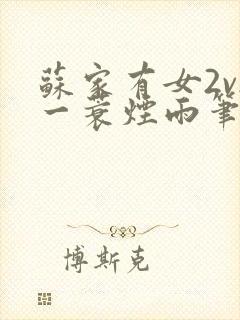 蘇家有女2v
一蓑煙雨筆
博斯克